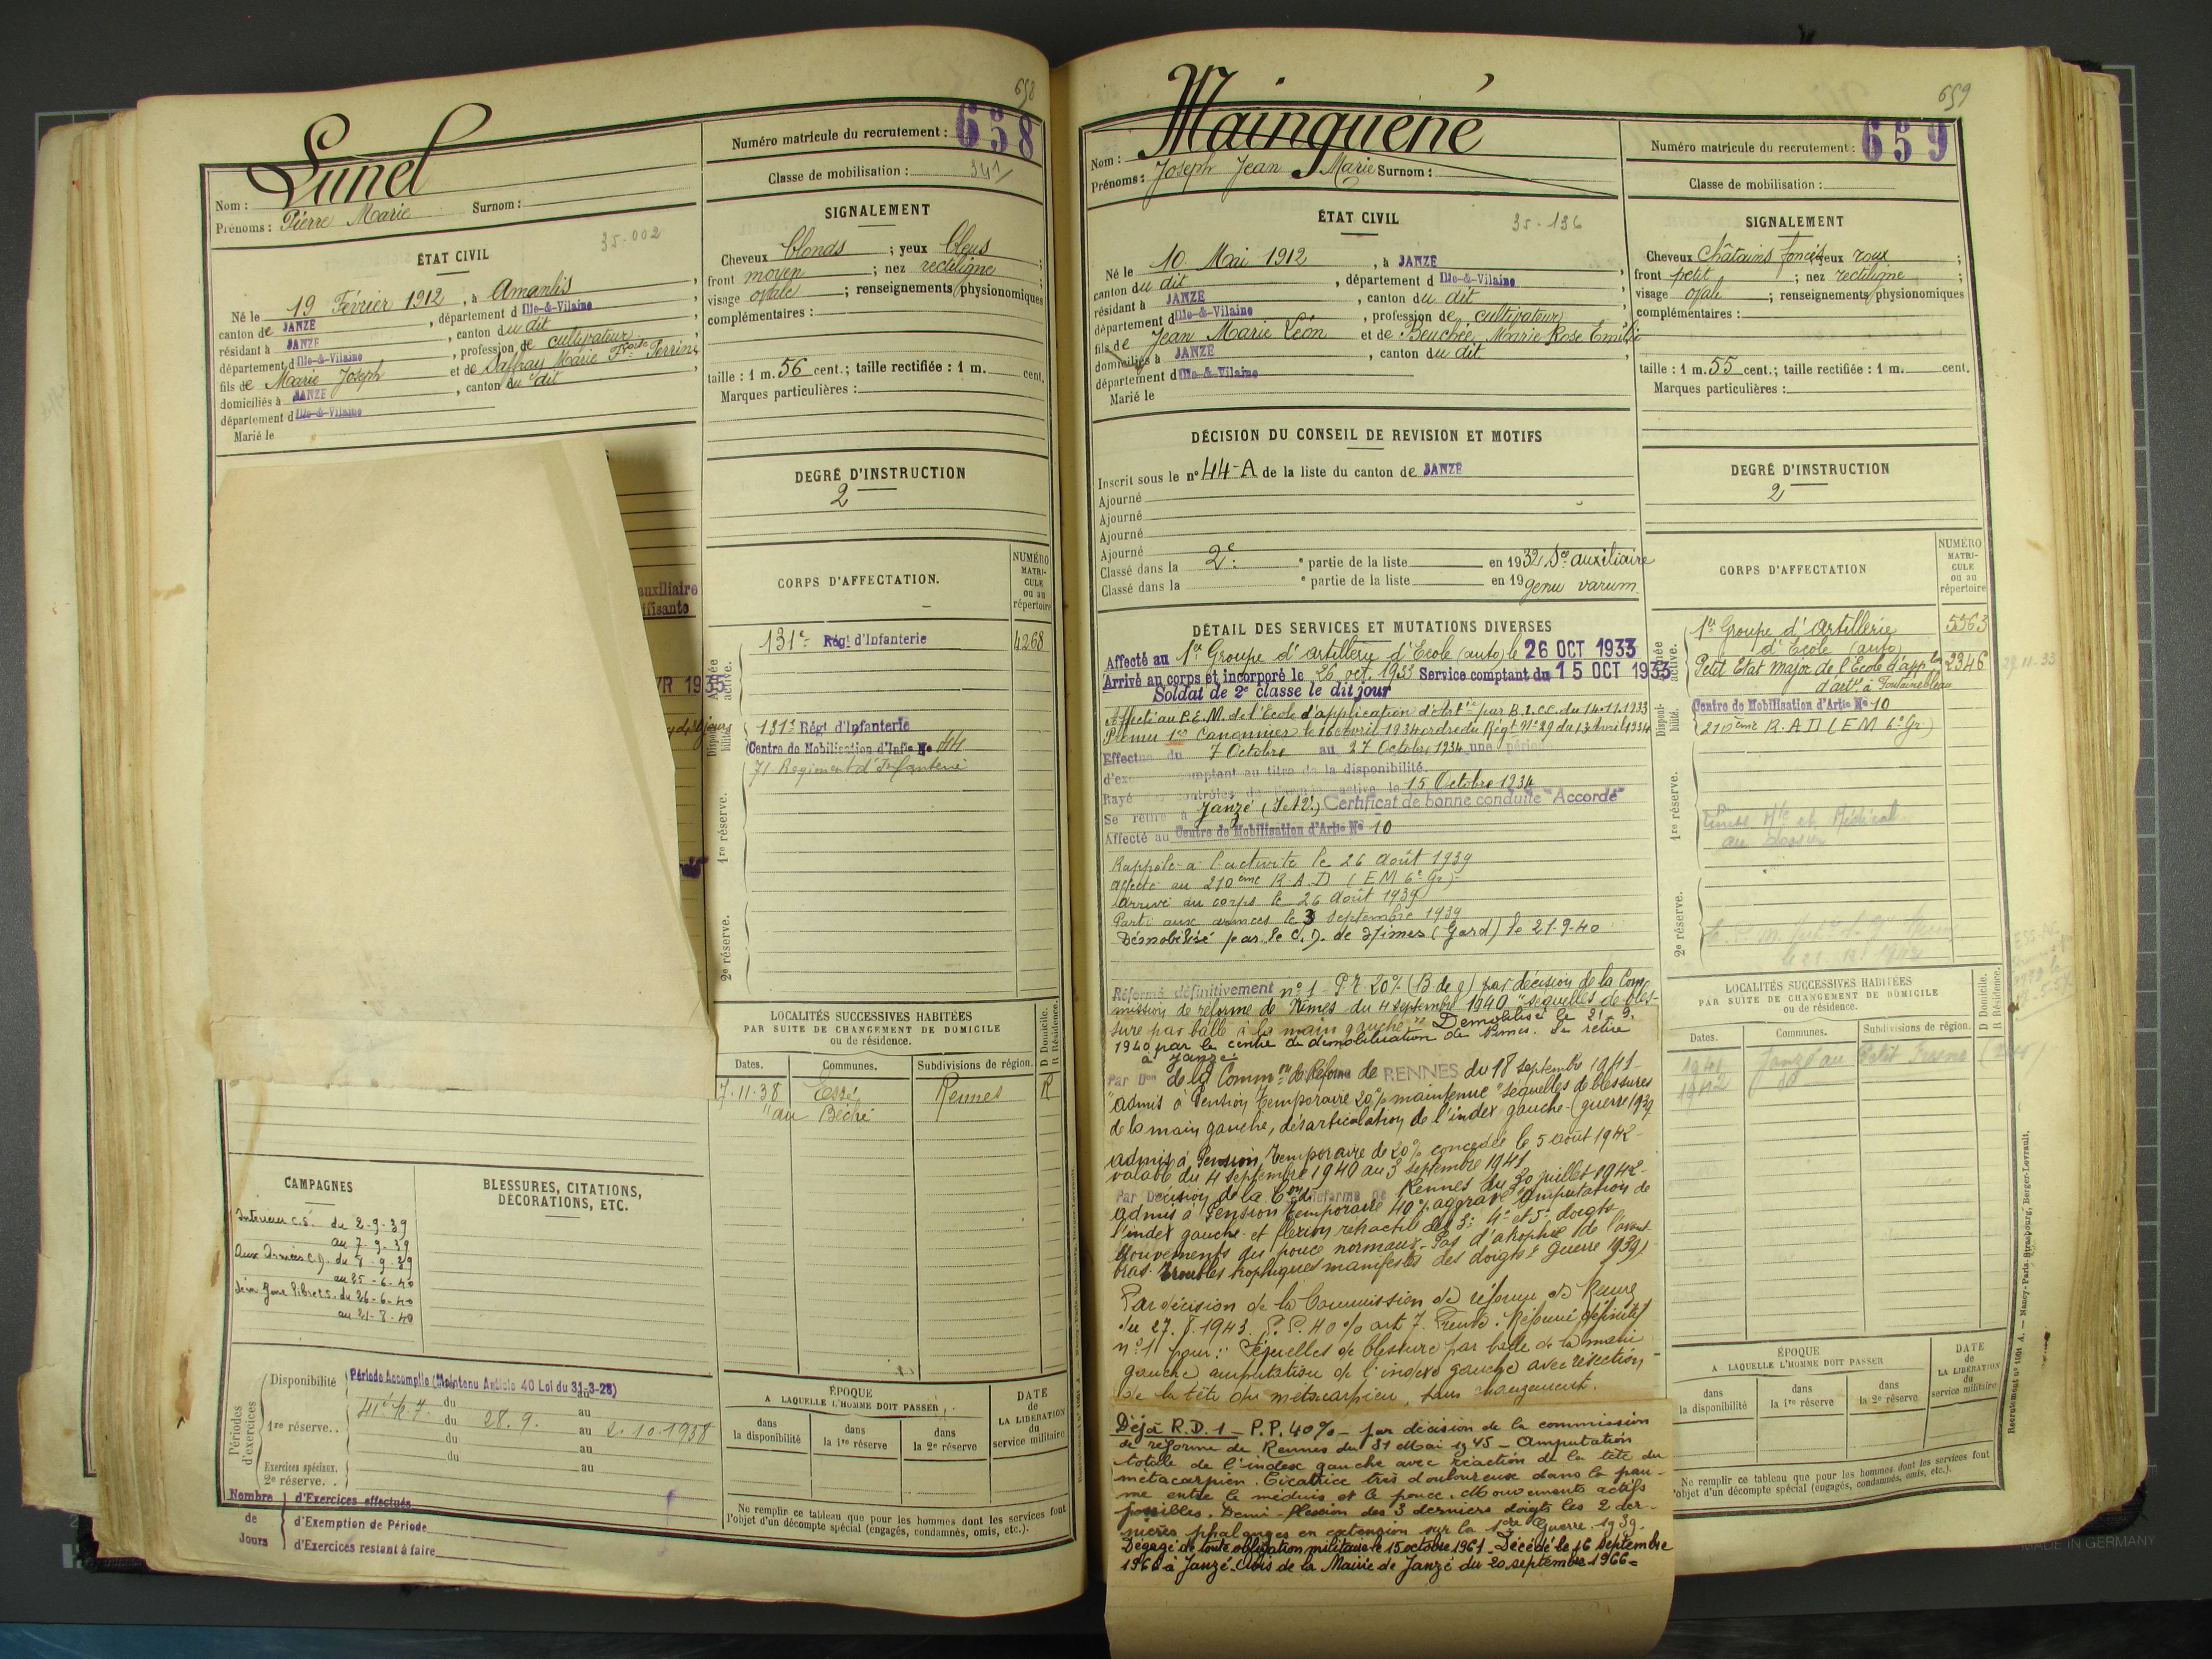 658
Numéro matricule du recrutement : 658
Classe de mobilisation : 341
Nom : Lunel
Prénoms : Pierre Marie Surnom :
ÉTAT CIVIL
35-002
Né le 19 Février 1912, à Amanlis
canton de JANZÉ, département d Ille-&-Vilaine
résidant à JANZÉ, canton du dit
département d Ille-&-Vilaine, profession de cultivateur
fils de Marie Joseph et de Saffray Marie Frse Perrine
domiciliés à JANZÉ, canton du dit
département d Ille-&-Vilaine
Marié le
SIGNALEMENT
Cheveux blonds ; yeux bleus ;
front moyen ; nez rectiligne ;
visage ovale ; renseignements physionomiques
complémentaires :
taille : 1 m. 56 cent. ; taille rectifiée : 1 m. cent.
Marques particulières :
DEGRÉ D'INSTRUCTION
2
auxiliaire
CORPS D'AFFECTATION.
NUMÉRO MATRICULE ou au répertoire
Armée active.
131e Régt d'Infanterie 4268
Disponibilité.
131e Régt d'Infanterie
Centre de Mobilisation d'Infie No 44
71 Regiment d'Infanterie
1re réserve.
2e réserve.
LOCALITÉS SUCCESSIVES HABITÉES
PAR SUITE DE CHANGEMENT DE DOMICILE
ou de résidence.
D Domicile.
R Résidence.
Dates. Communes. Subdivisions de région.
7.11.38 Essé Rennes R
"au Béché
CAMPAGNES
Intérieur C.S. du 2-9-39
au 7-9-39
Aux Armées C.D. du 8-9-39
au 25-6-40
du 26-6-40
au 21-8-40
BLESSURES, CITATIONS,
DÉCORATIONS, ETC.
Périodes d'exercices
Disponibilité Période Accomplie (Maintenu Article 40 Loi du 31-3-28)
du au
1re réserve.. du 28.9. au 2.10.1938
du au
Exercices spéciaux. du au
2e réserve..
Nombre de Jours
d'Exercices effectués
d'Exemption de Période
d'Exercices restant à faire
ÉPOQUE
A LAQUELLE L'HOMME DOIT PASSER
dans la disponibilité
dans la 1re réserve
dans la 2e réserve
DATE de LA LIBÉRATION du service militaire
Ne remplir ce tableau que pour les hommes dont les services font
l'objet d'un décompte spécial (engagés, condamnés, omis, etc.).
659
Numéro matricule du recrutement : 659
Classe de mobilisation :
Nom : Mainguené
Prénoms : Joseph Jean Marie Surnom :
ÉTAT CIVIL
35-136
Né le 10 Mai 1912, à JANZÉ
canton du dit, département d Ille-&-Vilaine
résidant à JANZÉ, canton du dit
département d Ille-&-Vilaine, profession de cultivateur
fils de Jean Marie Léon et de Beuchée Marie Rose Emilie
domiciliés à JANZÉ, canton du dit
département d Ille-&-Vilaine
Marié le
SIGNALEMENT
Cheveux Châtains foncés yeux roux ;
front petit ; nez rectiligne ;
visage ovale ; renseignements physionomiques
complémentaires :
taille : 1 m. 55 cent. ; taille rectifiée : 1 m. cent.
Marques particulières :
DÉCISION DU CONSEIL DE REVISION ET MOTIFS
Inscrit sous le n° 44-A de la liste du canton de JANZÉ
Ajourné
Ajourné
Ajourné
Ajourné
Classé dans la 2e partie de la liste en 1932 Sce auxiliaire
Classé dans la e partie de la liste en 19 genu varum
DEGRÉ D'INSTRUCTION
2
DÉTAIL DES SERVICES ET MUTATIONS DIVERSES
Affecté au 1er Groupe d'artillerie d'Ecole (auto) le 26 OCT 1933
Arrivé au corps et incorporé le 26 oct. 1933 Service comptant du 15 OCT 1933
Soldat de 2e classe le dit jour
Affecté au P.E.M. de l'Ecole d'application d'Artie par B.I.CC. du 14.11.1933
Promu 1er Canonnier le 16 avril 1934 ordre du Régt No 29 du 13 Avril 1934
Effectue du 7 Octobre au 27 Octobre 1934 une période
d'ex comptant au titre de la disponibilité.
Rayé des contrôles de l'armée active le 15 Octobre 1934
Se retire à Janzé (I.et V.) Certificat de bonne conduite "Accordé"
Affecté au Centre de Mobilisation d'Artie No 10
Rappelé à l'activité le 26 Août 1939
affecté au 210ème R.A.D (EM 6e Gr)
arrivé au corps le 26 Août 1939
Parti aux armées le 3 Septembre 1939
Démobilisé par le C.D. de Nimes (Gard) le 21-9-40
Réformé définitivement n°1 P.T. 20% (B de g) par décision de la Com-
mission de réforme de Nimes du 4 septembre 1940 "séquelles de bles-
sure par balle à la main gauche" Démobilisé le 21-9-
1940 par le centre de démobilisation de Nimes. Se retire
à Janzé.
Par Don de la Common de Réforme de RENNES du 18 septembre 1941
"admis à Pension temporaire 20% maintenue "séquelles de blessures
de la main gauche, désarticulation de l'index gauche - (guerre 1939
admis à Pension temporaire de 20% concédée le 5 aout 1942 -
valable du 4 septembre 1940 au 3 septembre 1941
Par Décision de la Con de Réforme de Rennes du 30 juillet 1942 -
admis à Pension temporaire 40% aggravé "amputation de
l'index gauche et flexion retractile des 3e 4e et 5e doigts
Mouvements du pouce normaux - Pas d'atrophie de l'avant
bras. Troubles trophiques manifestes des doigts (Guerre 1939)
Par décision de la Commission de réforme de Rennes
du 27.8.1943 P.P. 40% art 7. Réformé définitif
n°1 pour : Séquelles de blessure par balle de la main
gauche amputation de l'index gauche avec résection
de la tête du métacarpien, sans changement.
Déjà R.D.1 - P.P. 40% - par décision de la commission
de réforme de Rennes du 31 Mai 1945 - Amputation
totale de l'index gauche avec réaction de la tête du
métacarpien. Cicatrice très douloureuse dans la pau-
me entre le médius et le pouce. Mouvements actifs
possibles. Demi-flexion des 3 derniers doigts les 2 der-
nières phalanges en extension sur la 1ère Guerre 1939.
Dégagé de toute obligation militaire le 15 octobre 1961. Décédé le 16 Septembre
1966 à Janzé. Avis de la Mairie de Janzé du 20 septembre 1966=
CORPS D'AFFECTATION
NUMÉRO MATRICULE ou au répertoire
Armée active.
1er Groupe d'Artillerie 5563
d'Ecole (auto)
Petit Etat Major de l'Ecole d'appon 2346
d'artie à Fontainebleau
Disponibilité.
Centre de Mobilisation d'Artie No 10
210ème R.A.D (EM 6e Gr)
1re réserve.
2e réserve.
LOCALITÉS SUCCESSIVES HABITÉES
PAR SUITE DE CHANGEMENT DE DOMICILE
ou de résidence.
D Domicile.
R Résidence.
Dates. Communes. Subdivisions de région.
1941 Janzé au Petit Fresne
1942
ÉPOQUE
A LAQUELLE L'HOMME DOIT PASSER
dans la disponibilité
dans la 1re réserve
dans la 2e réserve
DATE de LA LIBÉRATION du service militaire
Ne remplir ce tableau que pour les hommes dont les services font
l'objet d'un décompte spécial (engagés, condamnés, omis, etc.).
Recrutement n° 1161 A. — Nancy-Paris-Strasbourg, Berger-Levrault.
MADE IN GERMANY